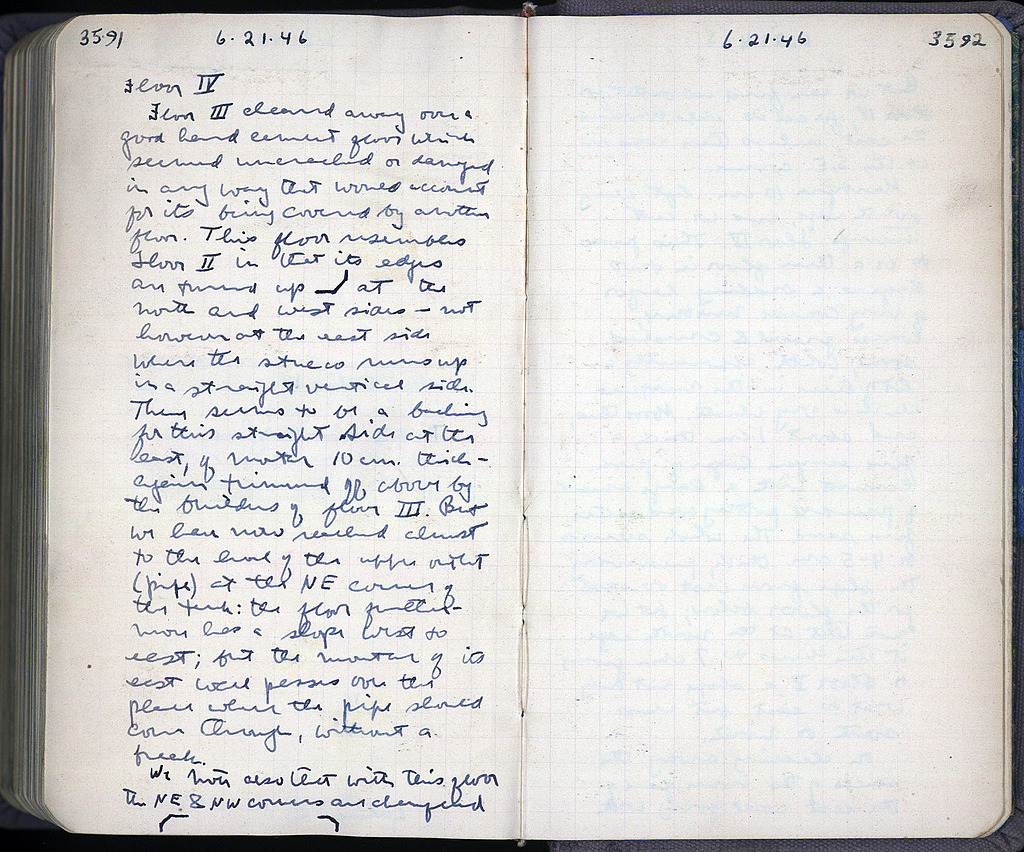 3591 6.21.46
Floor IV
Floor III cleared away over a
good hard cement floor which
seemed uncracked or damaged
in any way that would account
for its being covered by another
floor. This floor resembles
Floor II in that its edges
are turned up at the
north and west sides – not
however at the east side
where the stucco runs up
in a straight vertical side.
There seems to be a backing
for this straight side at the
east, of mortar 10 cm. thick –
again trimmed off above by
the builders of floor III. But
we have now reached almost
to the level of the upper outlet
(pipe) at the NE corner of
the tank: the floor further-
more has a slope west to
east; but the mortar of its
east wall passes over the
place where the pipe should
come through, without a
break.
We note also that with this floor
the NE & NW corners are chamfered
6.21.46 3592